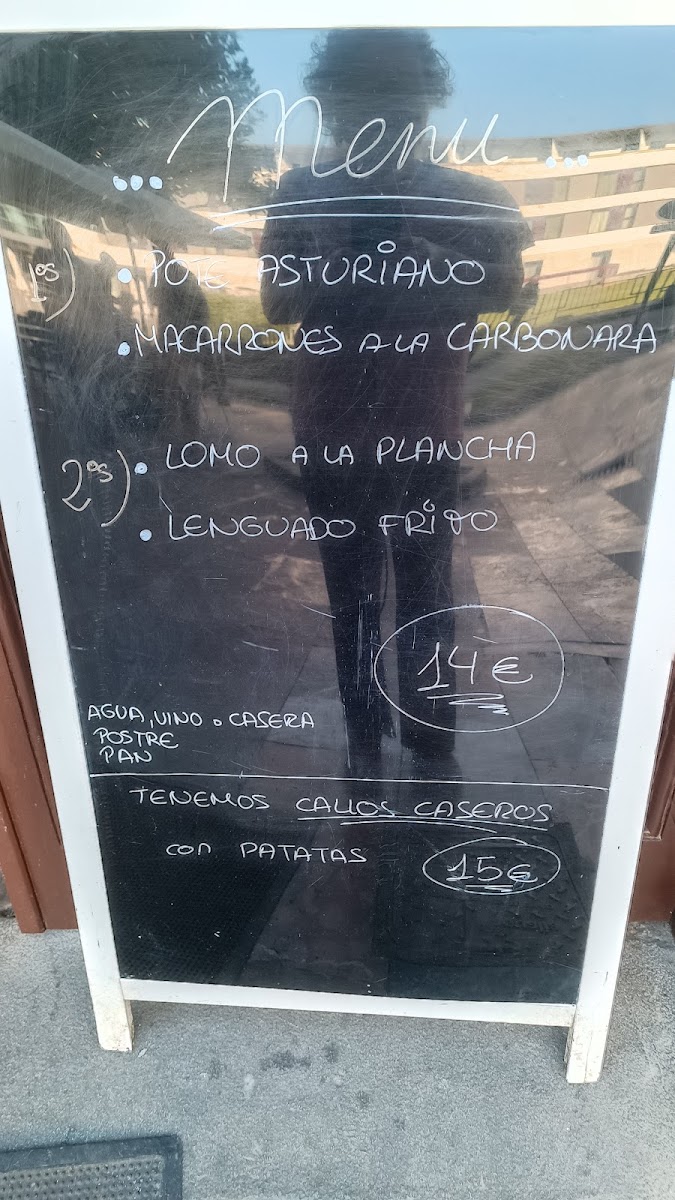 ... Menu ...
1os) • POTE ASTURIANO
• MACARRONES A LA CARBONARA
2os) • LOMO A LA PLANCHA
• LENGUADO FRITO
14€
AGUA, VINO o CASERA
POSTRE
PAN
TENEMOS CALLOS CASEROS
con PATATAS 15€